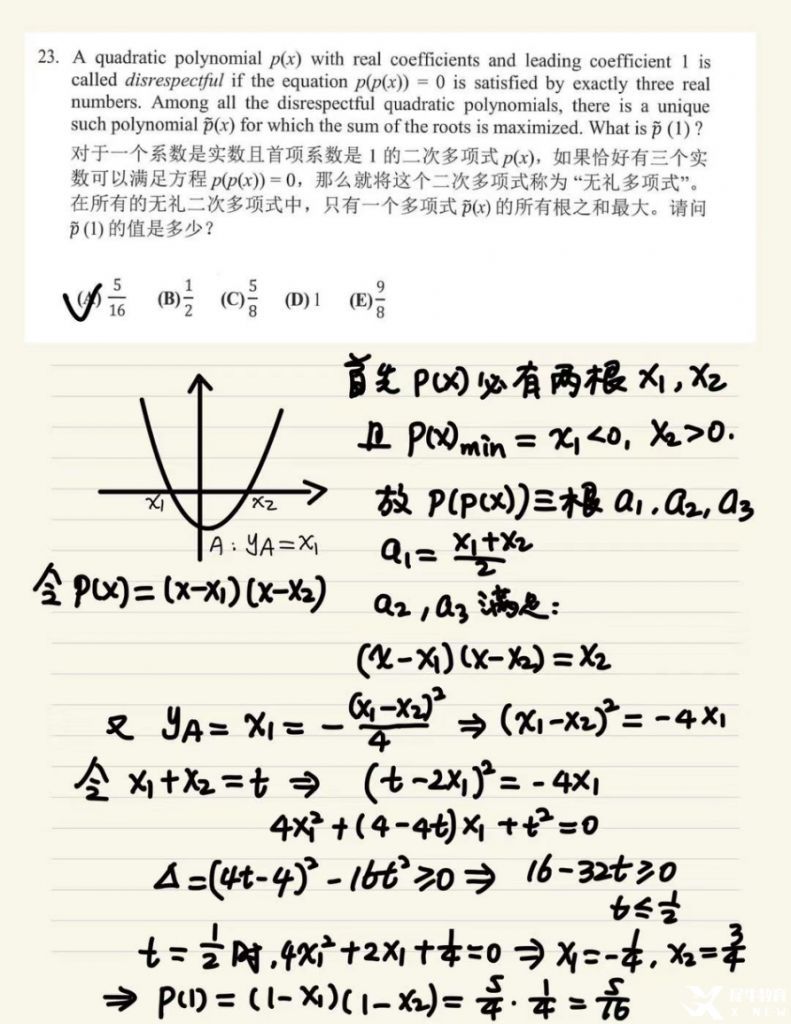 23. A quadratic polynomial p(x) with real coefficients and leading coefficient 1 is
called disrespectful if the equation p(p(x)) = 0 is satisfied by exactly three real
numbers. Among all the disrespectful quadratic polynomials, there is a unique
such polynomial p̃(x) for which the sum of the roots is maximized. What is p̃ (1) ?
对于一个系数是实数且首项系数是 1 的二次多项式 p(x)，如果恰好有三个实
数可以满足方程 p(p(x)) = 0，那么就将这个二次多项式称为 “无礼多项式”。
在所有的无礼二次多项式中，只有一个多项式 p̃(x) 的所有根之和最大。请问
p̃ (1) 的值是多少？
(A) 5/16 (B) 1/2 (C) 5/8 (D) 1 (E) 9/8
首先 P(x) 必有两根 x₁, x₂
且 P(x)min = x₁<0, x₂>0.
故 P(P(x)) 三根 a₁. a₂, a₃
x₁ x₂
A : yA = x₁
a₁ = (x₁+x₂)/2
令 P(x) = (x-x₁)(x-x₂)
a₂, a₃ 满足:
(x-x₁)(x-x₂) = x₂
又 yA = x₁ = -(x₁-x₂)²/4 ⇒ (x₁-x₂)² = -4x₁
令 x₁+x₂ = t ⇒ (t-2x₁)² = -4x₁
4x₁² + (4-4t)x₁ + t² = 0
Δ = (4t-4)² - 16t² ≥ 0 ⇒ 16-32t ≥ 0
t ≤ 1/2
t = 1/2 时, 4x₁² + 2x₁ + 1/4 = 0 ⇒ x₁ = -1/4, x₂ = 3/4
⇒ P(1) = (1-x₁)(1-x₂) = 5/4 · 1/4 = 5/16
犀牛教育
X NEW